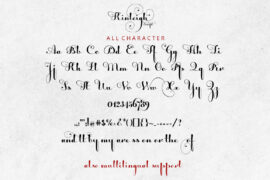 Hinleigh
Script
ALL CHARACTER
Aa Bb Cc Dd Ee Ff Gg Hh Ii
Jj Kk Ll Mm Nn Oo Pp Qq Rr
Ss Tt Uu Vv Ww Xx Yy Zz
0123456789
and tt by my are ss on or the of
also multilingual support